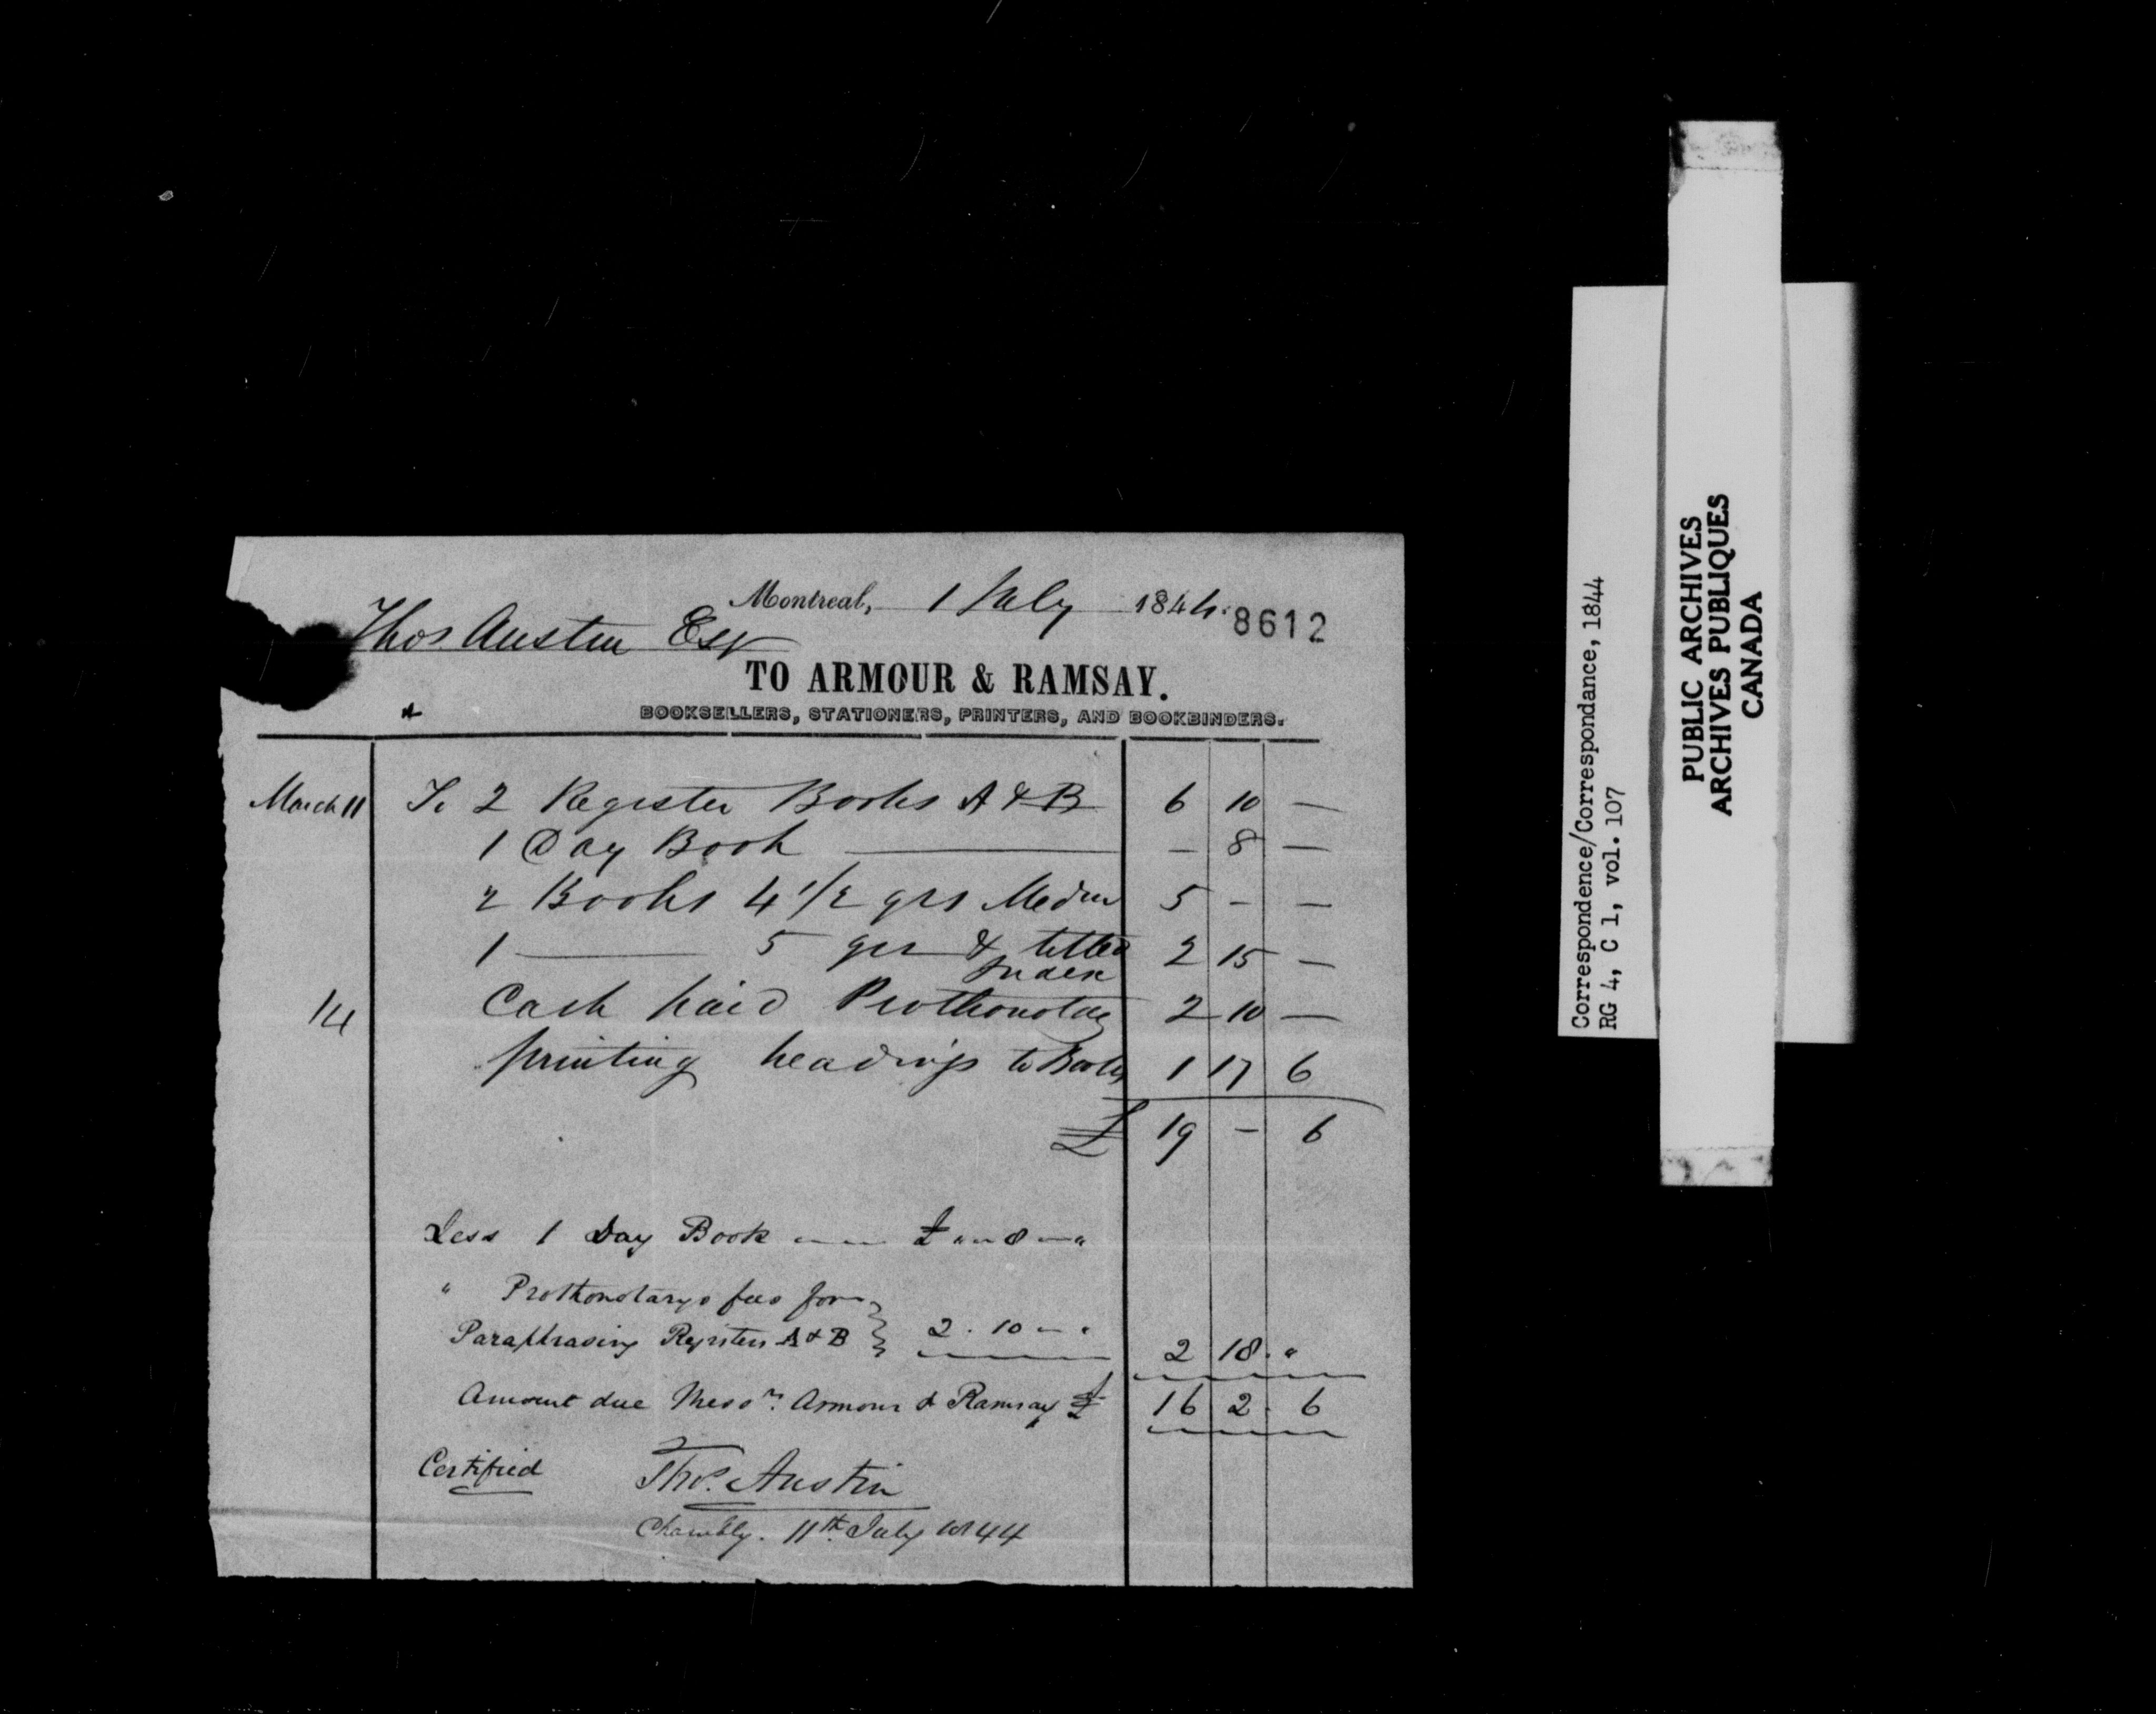 Montreal, 1 July 1844.
8612
Thos. Austin Esqr
TO ARMOUR & RAMSAY.
BOOKSELLERS, STATIONERS, PRINTERS, AND BOOKBINDERS.
March 11 To 2 Register Books A & B 6 10 —
1 Day Book — 8 —
2 Books 4 1/2 qrs Medm 5 - —
1 —— 5 qrs & lettd 2 15 —
Index
14 Cash paid Prothonotary 2 10 —
printing headings to Books 1 17 6
£ 19 - 6
Less 1 Day Book £ " 8 "
" Prothonotarys fees for
Paraphrasing Registers A & B } 2 . 10 - " 2 18 . "
Amount due Messrs. Armour & Ramsay £ 16 2 . 6
Certified Thos. Austin
Chambly. 11th July 1844
Correspondence/Correspondance, 1844
RG 4, C 1, vol. 107
PUBLIC ARCHIVES
ARCHIVES PUBLIQUES
CANADA